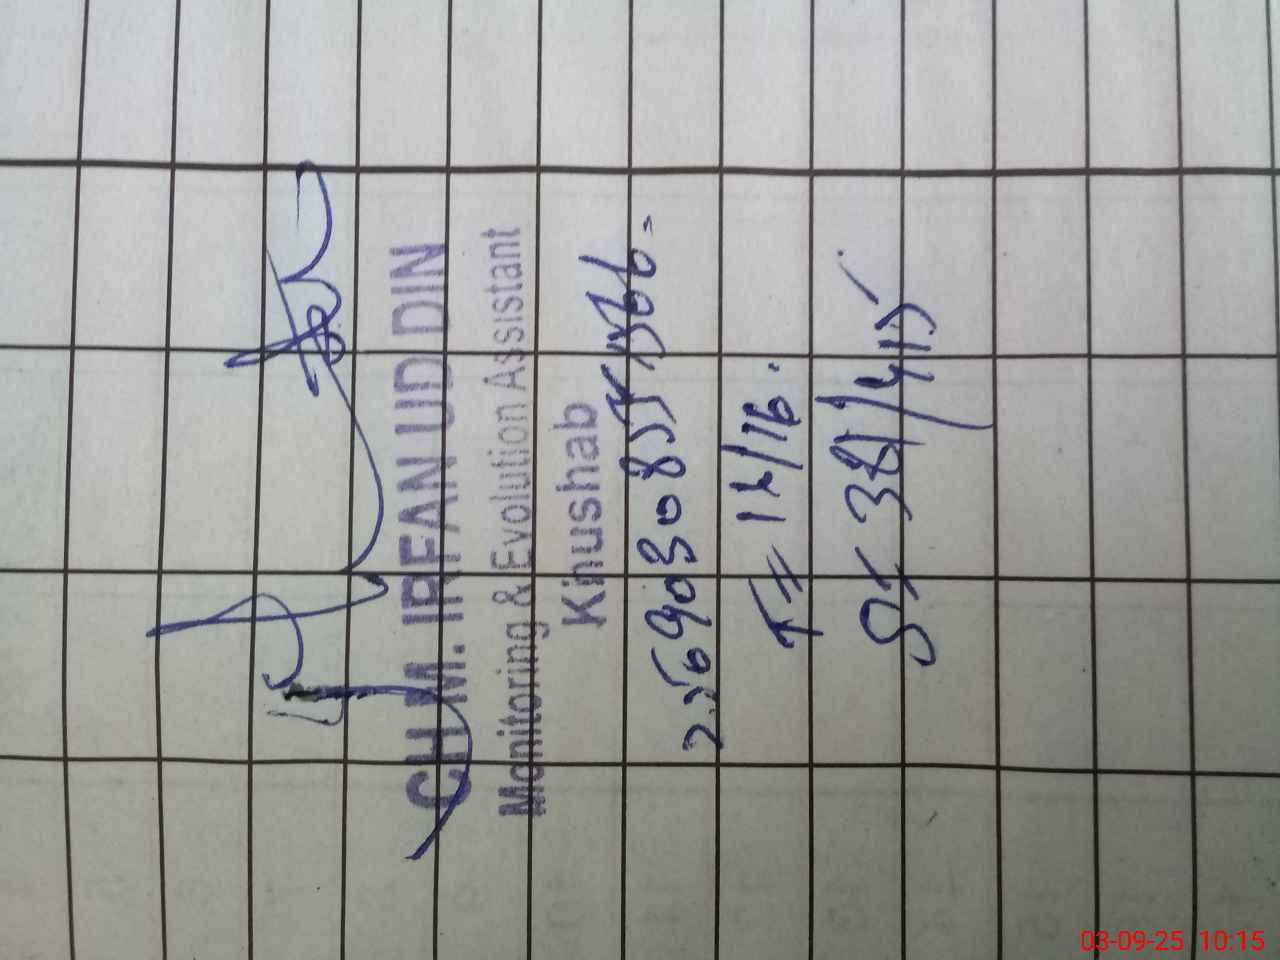 CH.M. IRFAN UD DIN
Monitoring & Evolution Assistant
Khushab
T = 12/16.
St = 381/415
03-09-25 10:15